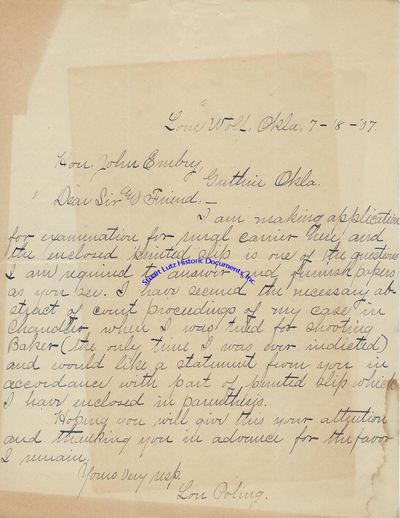 Lone Wolf, Okla. 7-18-'07.
Hon. John Embry,
Guthrie, Okla.
Dear Sir & Friend,—
I am making application
for examination for rural carrier here and
the enclosed printed slip is one of the questions
I am required to answer and furnish papers
as you see. I have secured the necessary ab-
stract of court proceedings of my case in
Chandler, when I was tried for shooting
Baker (the only time I was ever indicted)
and would like a statement from you in
accordance with part of printed slip which
I have enclosed in parenthesis.
Hoping you will give this your attention
and thanking you in advance for the favor
I remain,
Yours very resp.
Lon Poling.
Stuart Lutz Historic Documents, Inc.